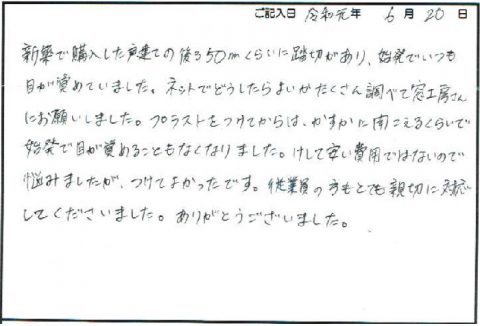 ご記入日 令和元年 6月 20日
新築で購入した戸建ての後ろ50mくらいに踏切があり、始発でいつも
目が覚めていました。ネットでどうしたらよいかたくさん調べて窓工房さん
にお願いしました。プラストをつけてからは、かすかに聞こえるくらいで
始発で目が覚めることもなくなりました。けして安い費用ではないので
悩みましたが、つけてよかったです。従業員の方もとても親切に対応
してくださいました。ありがとうございました。